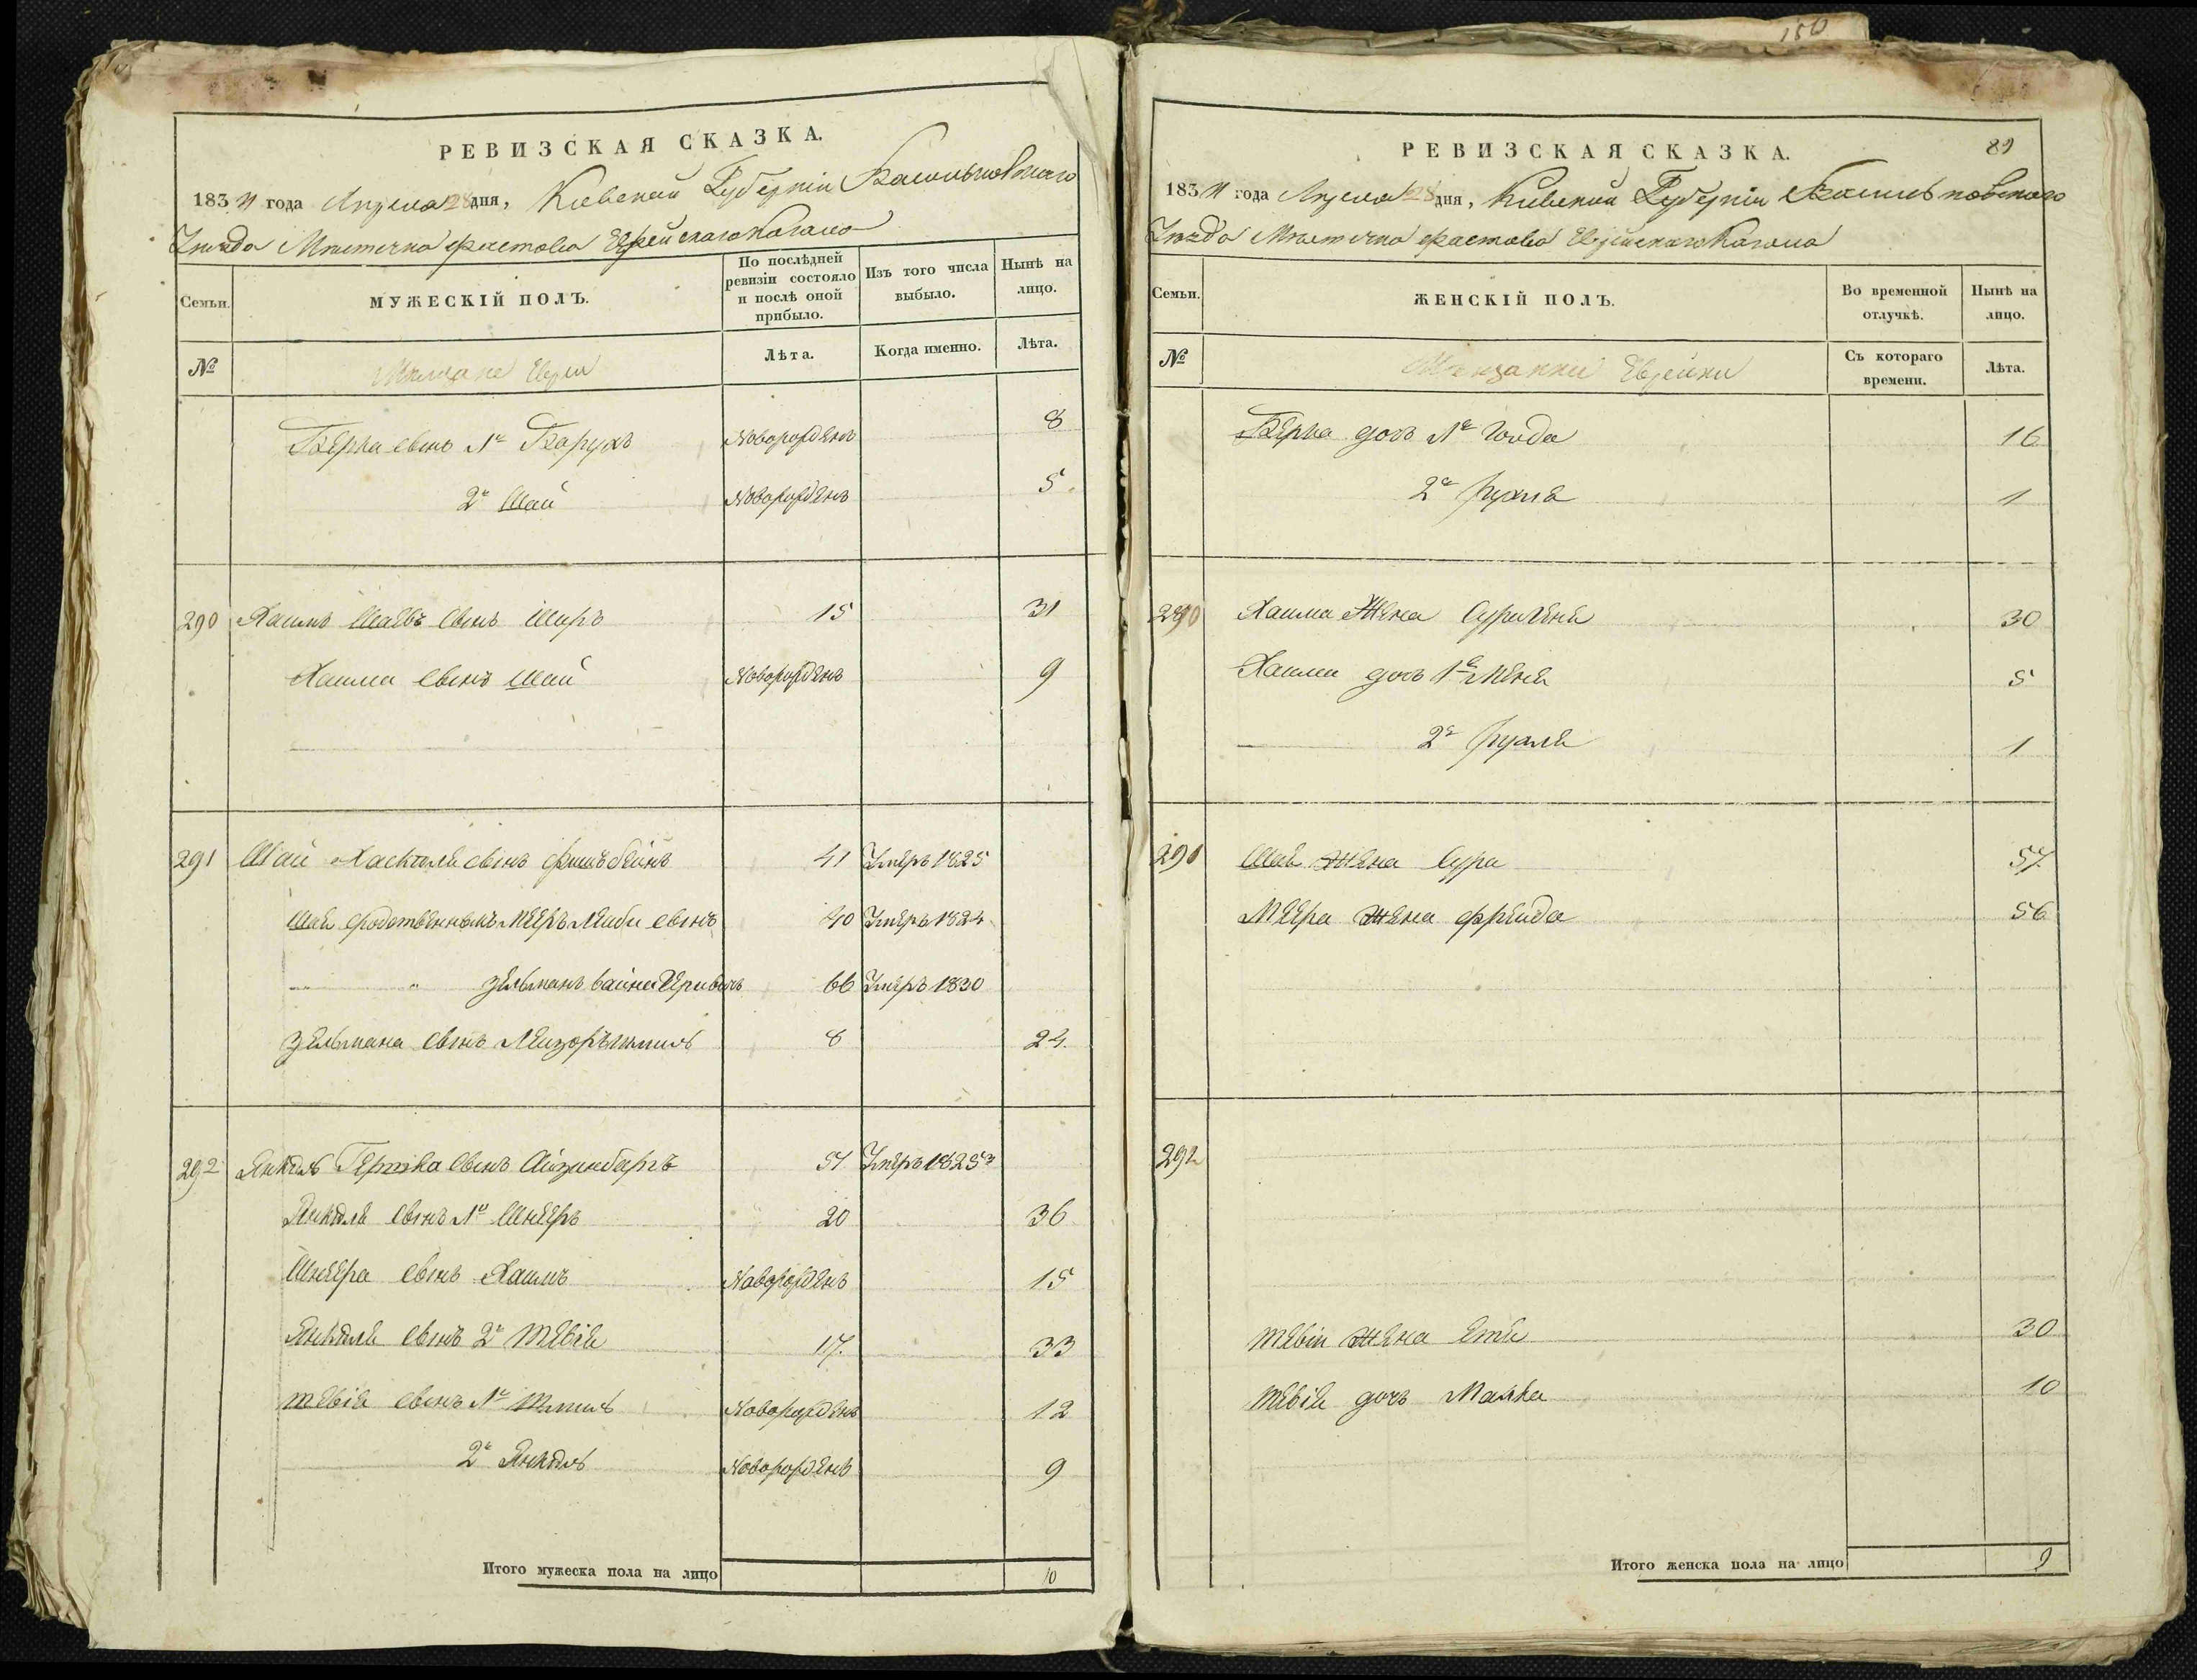 150
РЕВИЗСКАЯ СКАЗКА.
1834 года Апреля 28 дня, Киевской Губерніи Васильковскаго
Уезда Местечка Фастова Еврейскаго Кагала
Семьи.
МУЖЕСКІЙ ПОЛЪ.
По послѣдней ревизіи состояло и послѣ оной прибыло.
Изъ того числа выбыло.
Нынѣ на лицо.
№
Мещане Евреи
Лѣта.
Когда именно.
Лѣта.
Берка сынъ 1й Борухъ Новорожденъ 8
2й Шай Новорожденъ 5
290 Хаимъ Шаевъ сынъ 15 31
Хаима сынъ Шай Новорожденъ 9
291 Шай Хаскеля сынъ Фишбейнъ 41 Умеръ 1825
Шаи сродственникъ Мееръ Лейби сынъ 40 Умеръ 1824
" Зельманъ 66 Умеръ 1830
Зельмана сынъ 8 24.
292 Янкель Гершка сынъ Айзинбергъ 51 Умеръ 1825
Янкеля сынъ 1й Шнееръ 20 36
Шнеера сынъ Хаимъ Новорожденъ 15
Янкеля сынъ 2й Тевіе 17. 33
Тевіе сынъ 1й Новорожденъ 12
2й Янкель Новорожденъ 9
Итого мужеска пола на лицо 10
89
РЕВИЗСКАЯ СКАЗКА.
1834 года Апреля 28 дня, Киевской Губерніи Васильковскаго
Уезда Местечка Фастова Еврейскаго Кагала
Семьи.
ЖЕНСКІЙ ПОЛЪ.
Во временной отлучкѣ.
Нынѣ на лицо.
№
Мещанки Еврейки
Съ котораго времени.
Лѣта.
Берка дочь 1я 16
2я Рухля 1
290 Хаима Жена 30
Хаима дочь 1я 5
2я Рухля 1
291 Шаи Жена Сура 57.
Меера Жена Фрейда 56
292
Тевіи Жена Етя 30
Тевіи дочь Малка 10
Итого женска пола на лицо 9